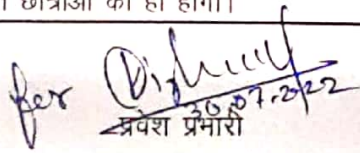 छात्राओं का ही होगा।
for
30.07.2022
प्रवेश प्रभारी